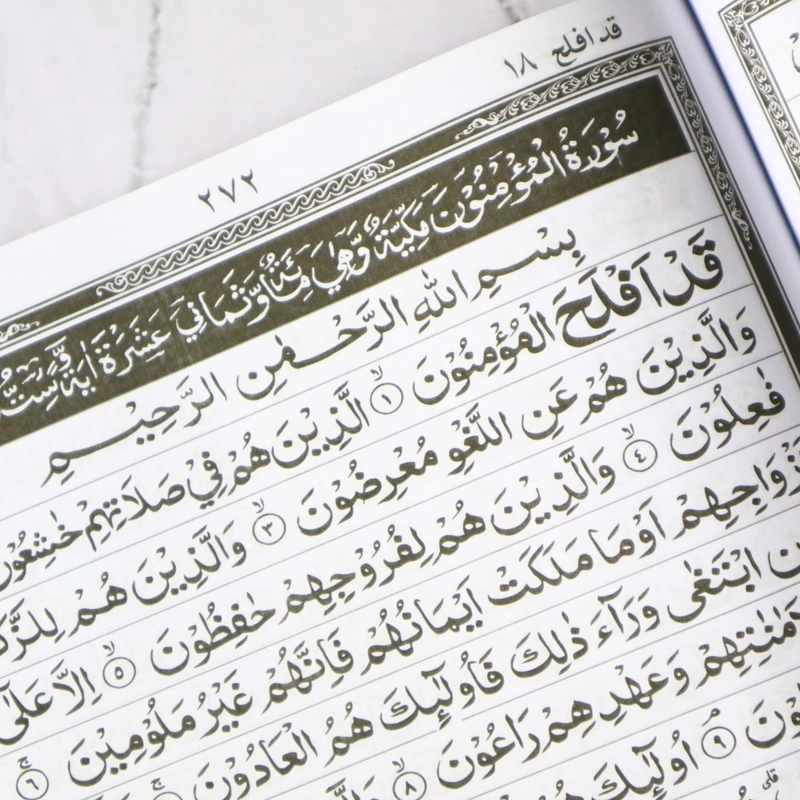 قد افلح ١٨
٢٧٢
سُوْرَةُ الْمُؤْمِنُوْنَ مَكِّيَّةٌ وَّهِيَ مِائَةٌ وَّثَمَانِيَ عَشْرَةَ اٰيَةً وَّسِتُّ
بِسْمِ اللهِ الرَّحْمٰنِ الرَّحِيْمِ
قَدْ اَفْلَحَ الْمُؤْمِنُوْنَ ١ الَّذِيْنَ هُمْ فِيْ صَلَاتِهِمْ خٰشِعُوْنَ
وَالَّذِيْنَ هُمْ عَنِ اللَّغْوِ مُعْرِضُوْنَ ٣ وَالَّذِيْنَ هُمْ
فٰعِلُوْنَ ٤ وَالَّذِيْنَ هُمْ لِفُرُوْجِهِمْ حٰفِظُوْنَ ٥ اِلَّا عَلٰى
اَوْمَا مَلَكَتْ اَيْمَانُهُمْ فَاِنَّهُمْ غَيْرُ مَلُوْمِيْنَ ٦
ابْتَغٰى وَرَآءَ ذٰلِكَ فَاُولٰٓئِكَ هُمُ الْعَادُوْنَ
وَعَهْدِهِمْ رَاعُوْنَ ٨
٩ اُولٰٓئِكَ هُمُ